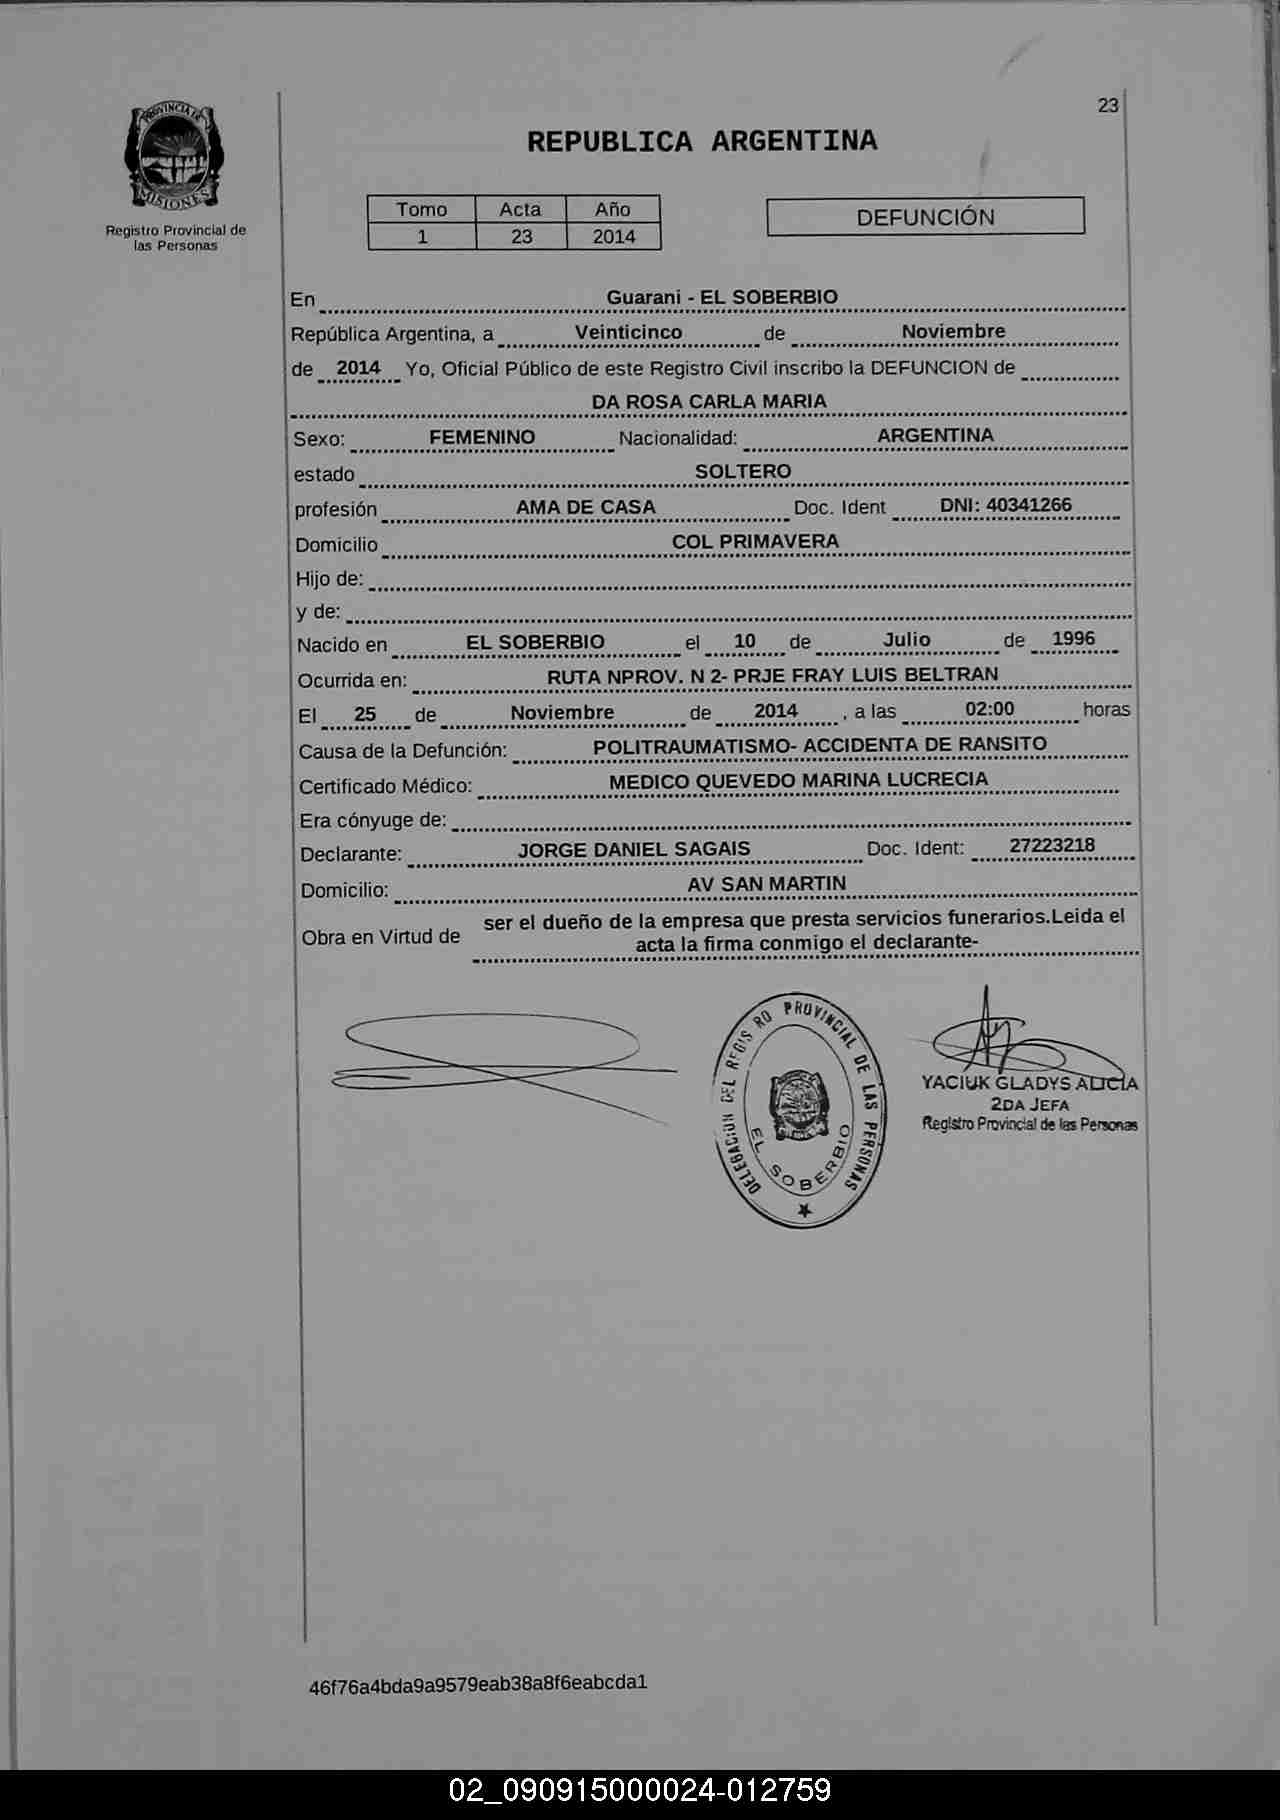 23
PROVINCIA DE
MISIONES
Registro Provincial de
las Personas
REPUBLICA ARGENTINA
Tomo Acta Año
1 23 2014
DEFUNCIÓN
En Guarani - EL SOBERBIO
República Argentina, a Veinticinco de Noviembre
de 2014 Yo, Oficial Público de este Registro Civil inscribo la DEFUNCION de
DA ROSA CARLA MARIA
Sexo: FEMENINO Nacionalidad: ARGENTINA
estado SOLTERO
profesión AMA DE CASA Doc. Ident DNI: 40341266
Domicilio COL PRIMAVERA
Hijo de:
y de:
Nacido en EL SOBERBIO el 10 de Julio de 1996
Ocurrida en: RUTA NPROV. N 2- PRJE FRAY LUIS BELTRAN
El 25 de Noviembre de 2014 , a las 02:00 horas
Causa de la Defunción: POLITRAUMATISMO- ACCIDENTA DE RANSITO
Certificado Médico: MEDICO QUEVEDO MARINA LUCRECIA
Era cónyuge de:
Declarante: JORGE DANIEL SAGAIS Doc. Ident: 27223218
Domicilio: AV SAN MARTIN
Obra en Virtud de ser el dueño de la empresa que presta servicios funerarios.Leida el
acta la firma conmigo el declarante-
DELEGACION DEL REGIS RO PROVINCIAL DE LAS PERSONAS
EL SOBERBIO
YACIUK GLADYS ALICIA
2DA JEFA
Registro Provincial de las Personas
46f76a4bda9a9579eab38a8f6eabcda1
02_090915000024-012759